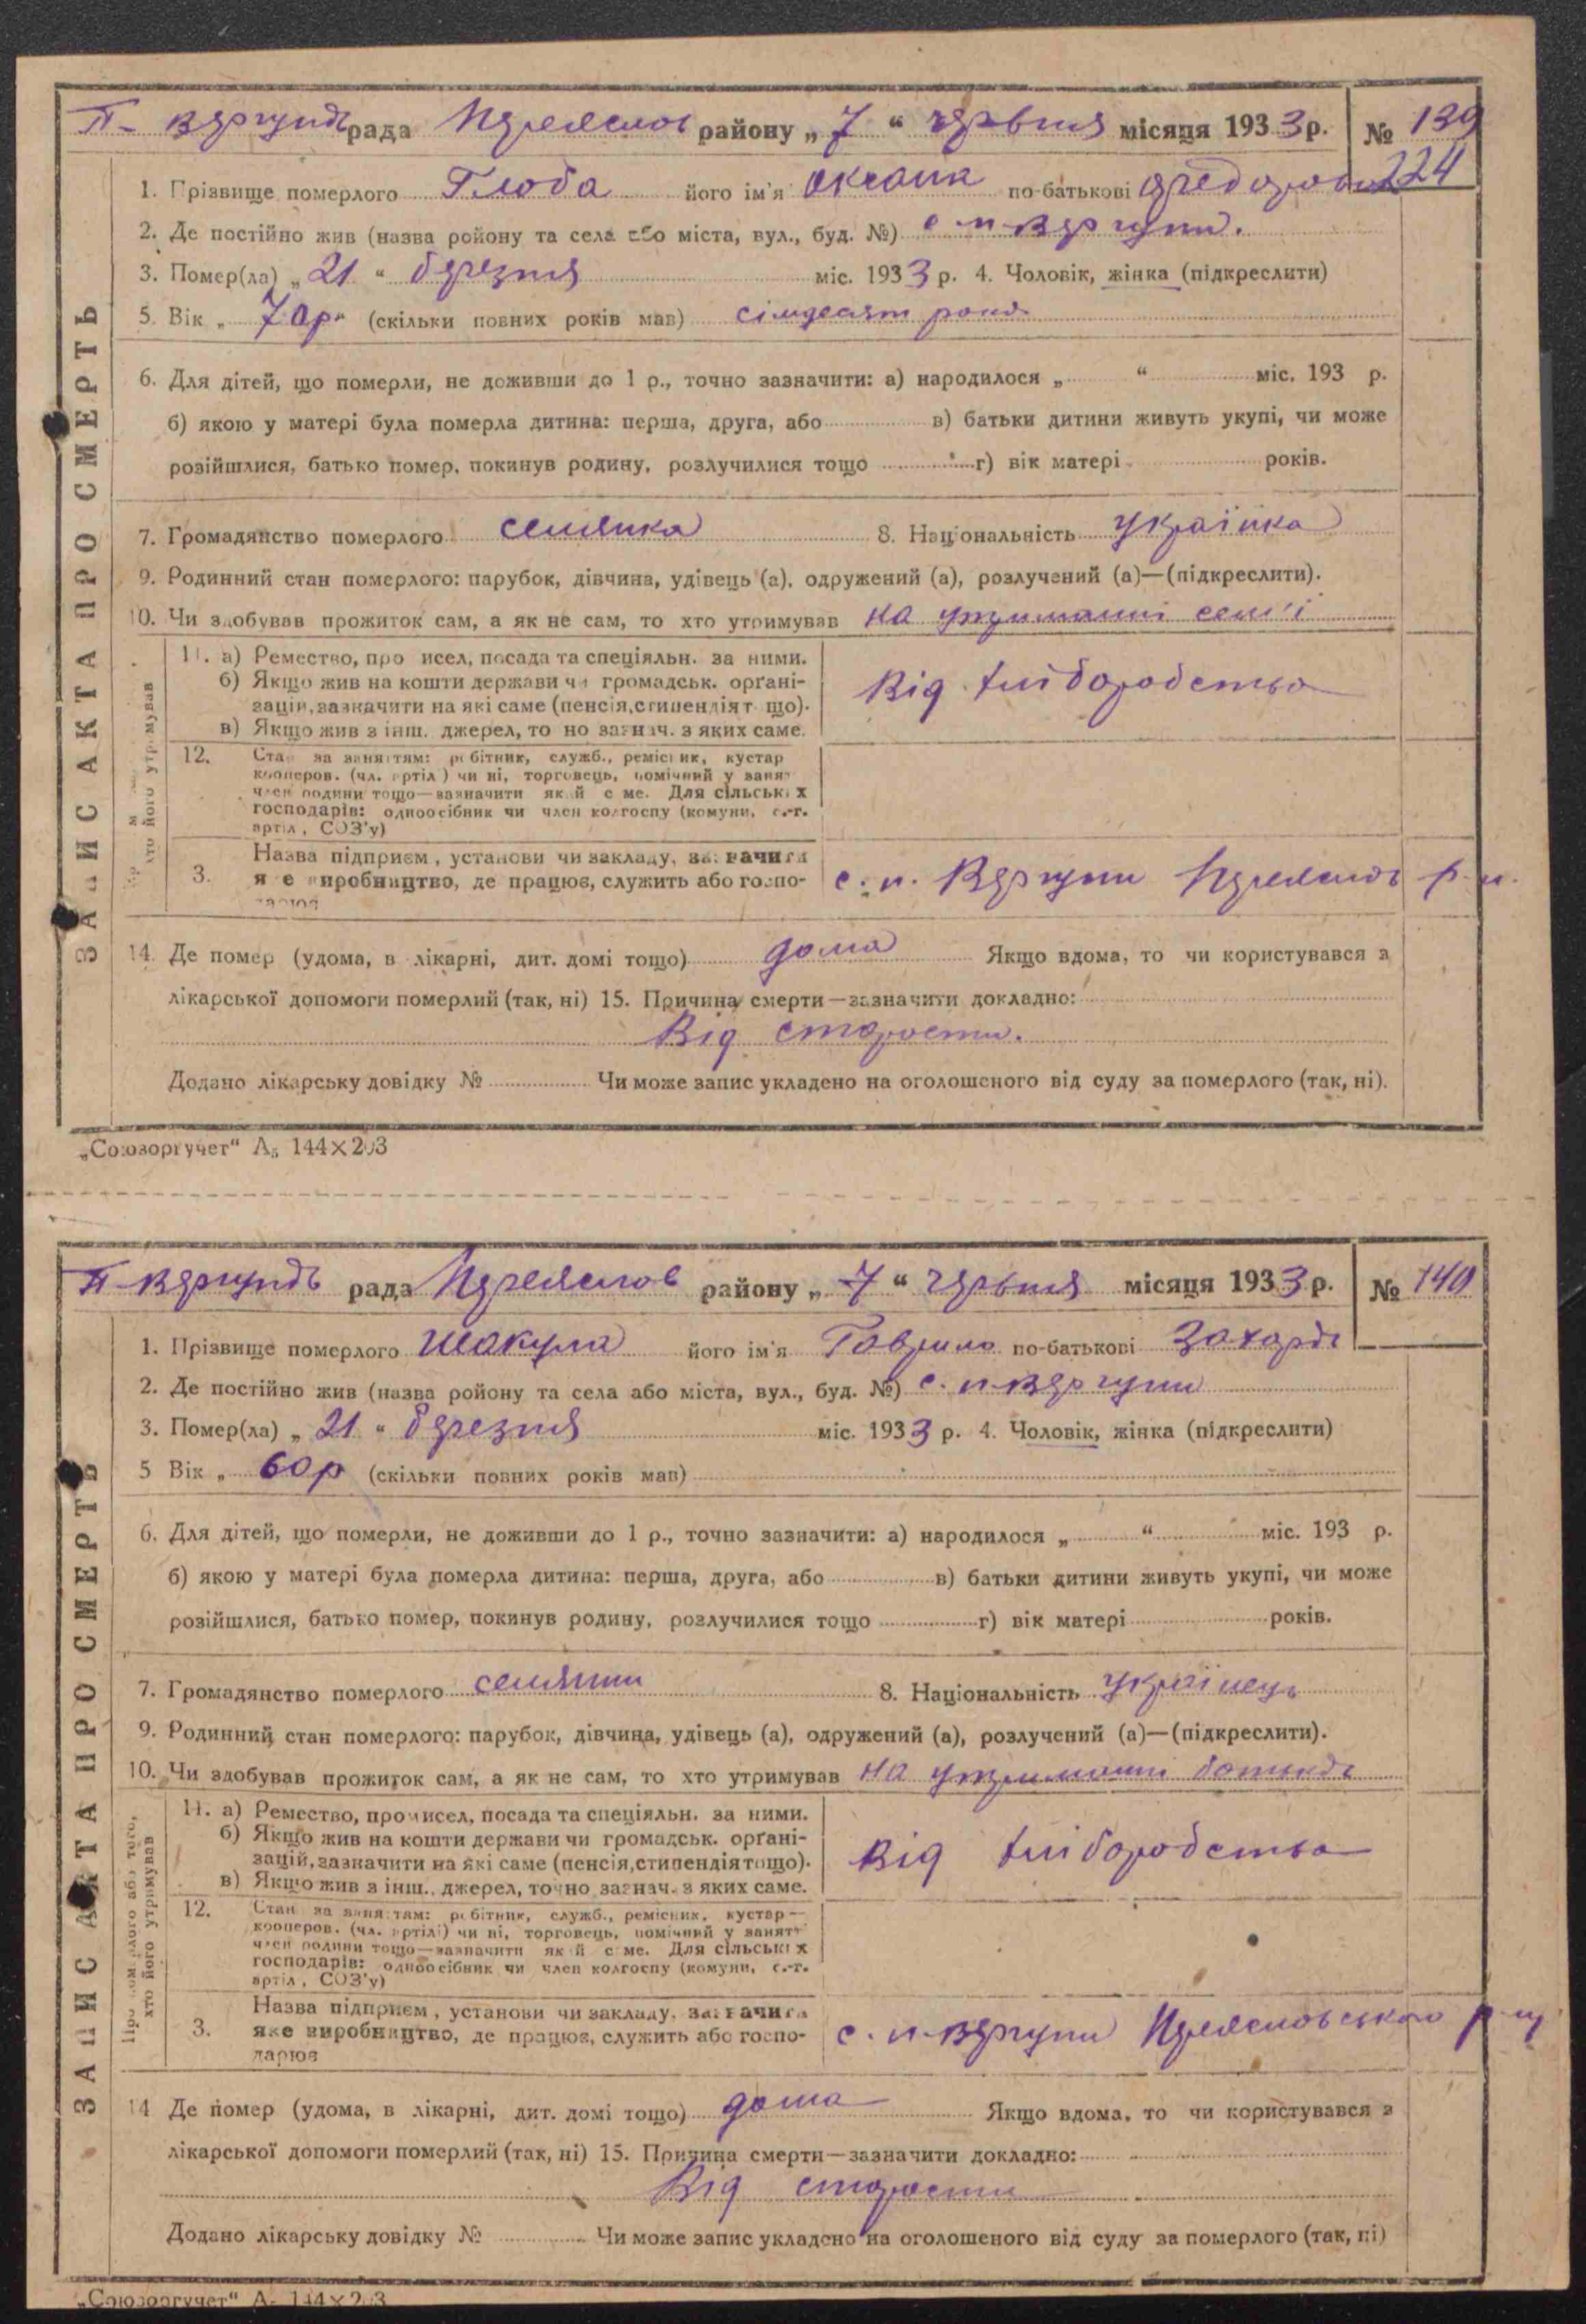 П-Вергунів рада Переяслов району „7“ червня місяця 1933 р. № 139
224
1. Прізвище померлого Глоба його ім'я Оксана по-батькові Федоровна
2. Де постійно жив (назва району та села або міста, вул., буд. №) с п-Вергуни.
3. Помер(ла) „21“ березня міс. 1933 р. 4. Чоловік, жінка (підкреслити)
5. Вік „70р“ (скільки повних років мав) сімдесят років
6. Для дітей, що померли, не доживши до 1 р., точно зазначити: а) народилося „ “ міс. 193 р.
б) якою у матері була померла дитина: перша, друга, або в) батьки дитини живуть укупі, чи може
розійшлися, батько помер, покинув родину, розлучилися тощо г) вік матері років.
7. Громадянство померлого селянка 8. Національність українка
9. Родинний стан померлого: парубок, дівчина, удівець (а), одружений (а), розлучений (а)—(підкреслити).
10. Чи здобував прожиток сам, а як не сам, то хто утримував на утриманні семї
ЗАПИС АКТА ПРО СМЕРТЬ
хто його утримував
11. а) Ремество, про исел, посада та спеціяльн. за ними.
б) Якщо жив на кошти держави чи громадськ. орґані-
зацій, зазначити на які саме (пенсія, стипендія т що).
в) Якщо жив з інш. джерел, то но зазнач. з яких саме.
Від хліборобства
12. Стан за заняттям: робітник, служб., ремісник, кустар
кооперов. (чл. артілі) чи ні, торговець, помічний у занят
член родини тощо—зазначити який саме. Для сільських
господарів: одноосібник чи член колгоспу (комуни, с.-г.
артіл, СОЗ'у)
3. Назва підприєм, установи чи закладу, зазначити
яке виробництво, де працює, служить або госпо-
дарює
с. п. Вергуни Переяслов р-н.
14. Де помер (удома, в лікарні, дит. домі тощо) дома Якщо вдома, то чи користувався з
лікарської допомоги померлий (так, ні) 15. Причина смерти—зазначити докладно:
Від старости.
Додано лікарську довідку № Чи може запис укладено на оголошеного від суду за померлого (так, ні).
„Союзоргучет“ А₅ 144×203
П-Вергунів рада Переяслов району „7“ червня місяця 1933 р. № 140
1. Прізвище померлого Шакула його ім'я Гаврило по-батькові Захарів
2. Де постійно жив (назва району та села або міста, вул., буд. №) с. п-Вергуни
3. Помер(ла) „21“ березня міс. 1933 р. 4. Чоловік, жінка (підкреслити)
5 Вік „60р (скільки повних років мав)
6. Для дітей, що померли, не доживши до 1 р., точно зазначити: а) народилося „ “ міс. 193 р.
б) якою у матері була померла дитина: перша, друга, або в) батьки дитини живуть укупі, чи може
розійшлися, батько помер, покинув родину, розлучилися тощо г) вік матері років.
7. Громадянство померлого селянин 8. Національність українець
9. Родинний стан померлого: парубок, дівчина, удівець (а), одружений (а), розлучений (а)—(підкреслити).
10. Чи здобував прожиток сам, а як не сам, то хто утримував на утриманні батьків
ЗАПИС АКТА ПРО СМЕРТЬ
Про померлого або того,
хто його утримував
11. а) Ремество, промисел, посада та спеціяльн. за ними.
б) Якщо жив на кошти держави чи громадськ. орґані-
зацій, зазначити на які саме (пенсія, стипендія тощо).
в) Якщо жив з інш. джерел, точно зазнач. з яких саме.
Від хліборобства
12. Стан за заняттям: робітник, служб., ремісник, кустар—
кооперов. (чл. артілі) чи ні, торговець, помічний у занятт
член родини тощо—зазначити який саме. Для сільських
господарів: одноосібник чи член колгоспу (комуни, с.-г.
артіл, СОЗ'у)
3. Назва підприєм, установи чи закладу, зазначити
яке виробництво, де працює, служить або госпо-
дарює
с. п-Вергуни Переясловського р-ну
14 Де помер (удома, в лікарні, дит. домі тощо) дома Якщо вдома, то чи користувався з
лікарської допомоги померлий (так, ні) 15. Причина смерти—зазначити докладно:
Від старости
Додано лікарську довідку № Чи може запис укладено на оголошеного від суду за померлого (так, ні)
„Союзоргучет“ А₅ 144×203